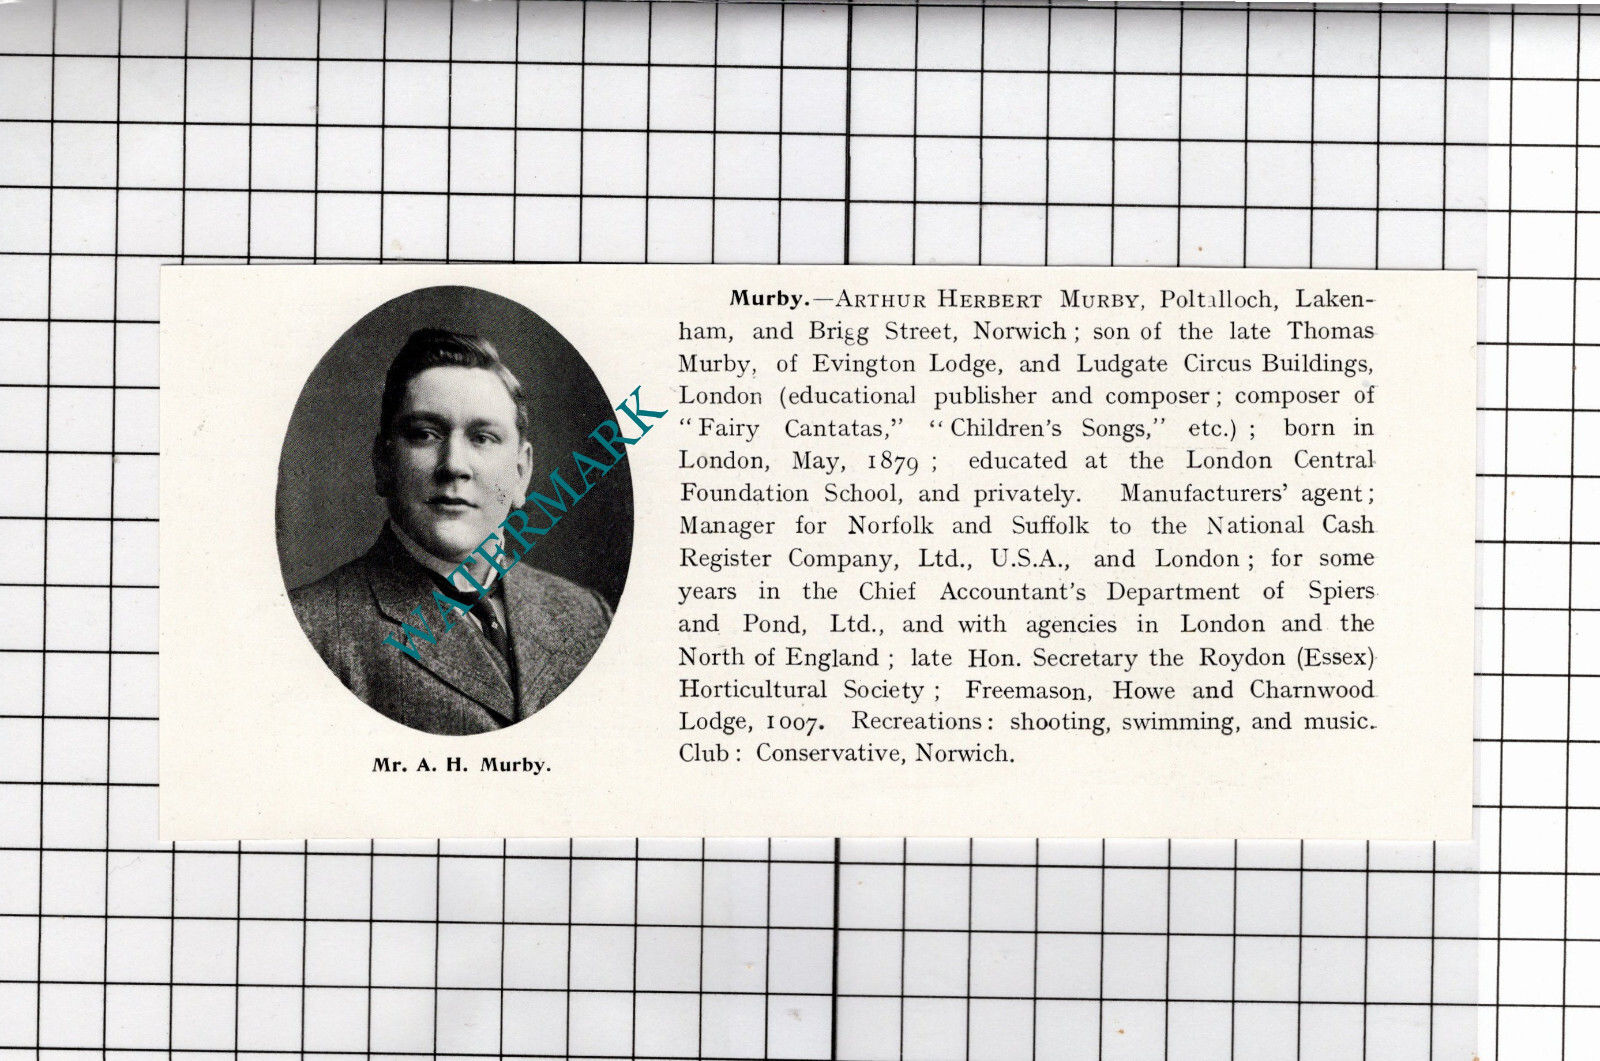 Murby.—ARTHUR HERBERT MURBY, Poltalloch, Laken-
ham, and Brigg Street, Norwich ; son of the late Thomas
Murby, of Evington Lodge, and Ludgate Circus Buildings,
London (educational publisher and composer ; composer of
“ Fairy Cantatas,” “ Children’s Songs,” etc.) ; born in
London, May, 1879 ; educated at the London Central
Foundation School, and privately. Manufacturers’ agent ;
Manager for Norfolk and Suffolk to the National Cash
Register Company, Ltd., U.S.A., and London ; for some
years in the Chief Accountant’s Department of Spiers
and Pond, Ltd., and with agencies in London and the
North of England ; late Hon. Secretary the Roydon (Essex)
Horticultural Society ; Freemason, Howe and Charnwood
Lodge, 1007. Recreations : shooting, swimming, and music.
Club : Conservative, Norwich.
Mr. A. H. Murby.
WATERMARK